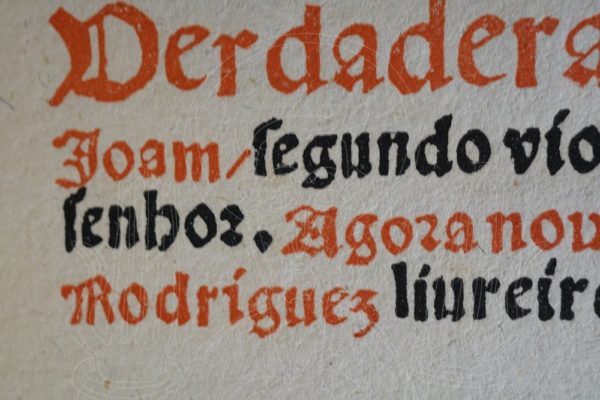 Verdadera
Joam/ segundo vio
senhor. Agora nou
Rodriguez liureiro